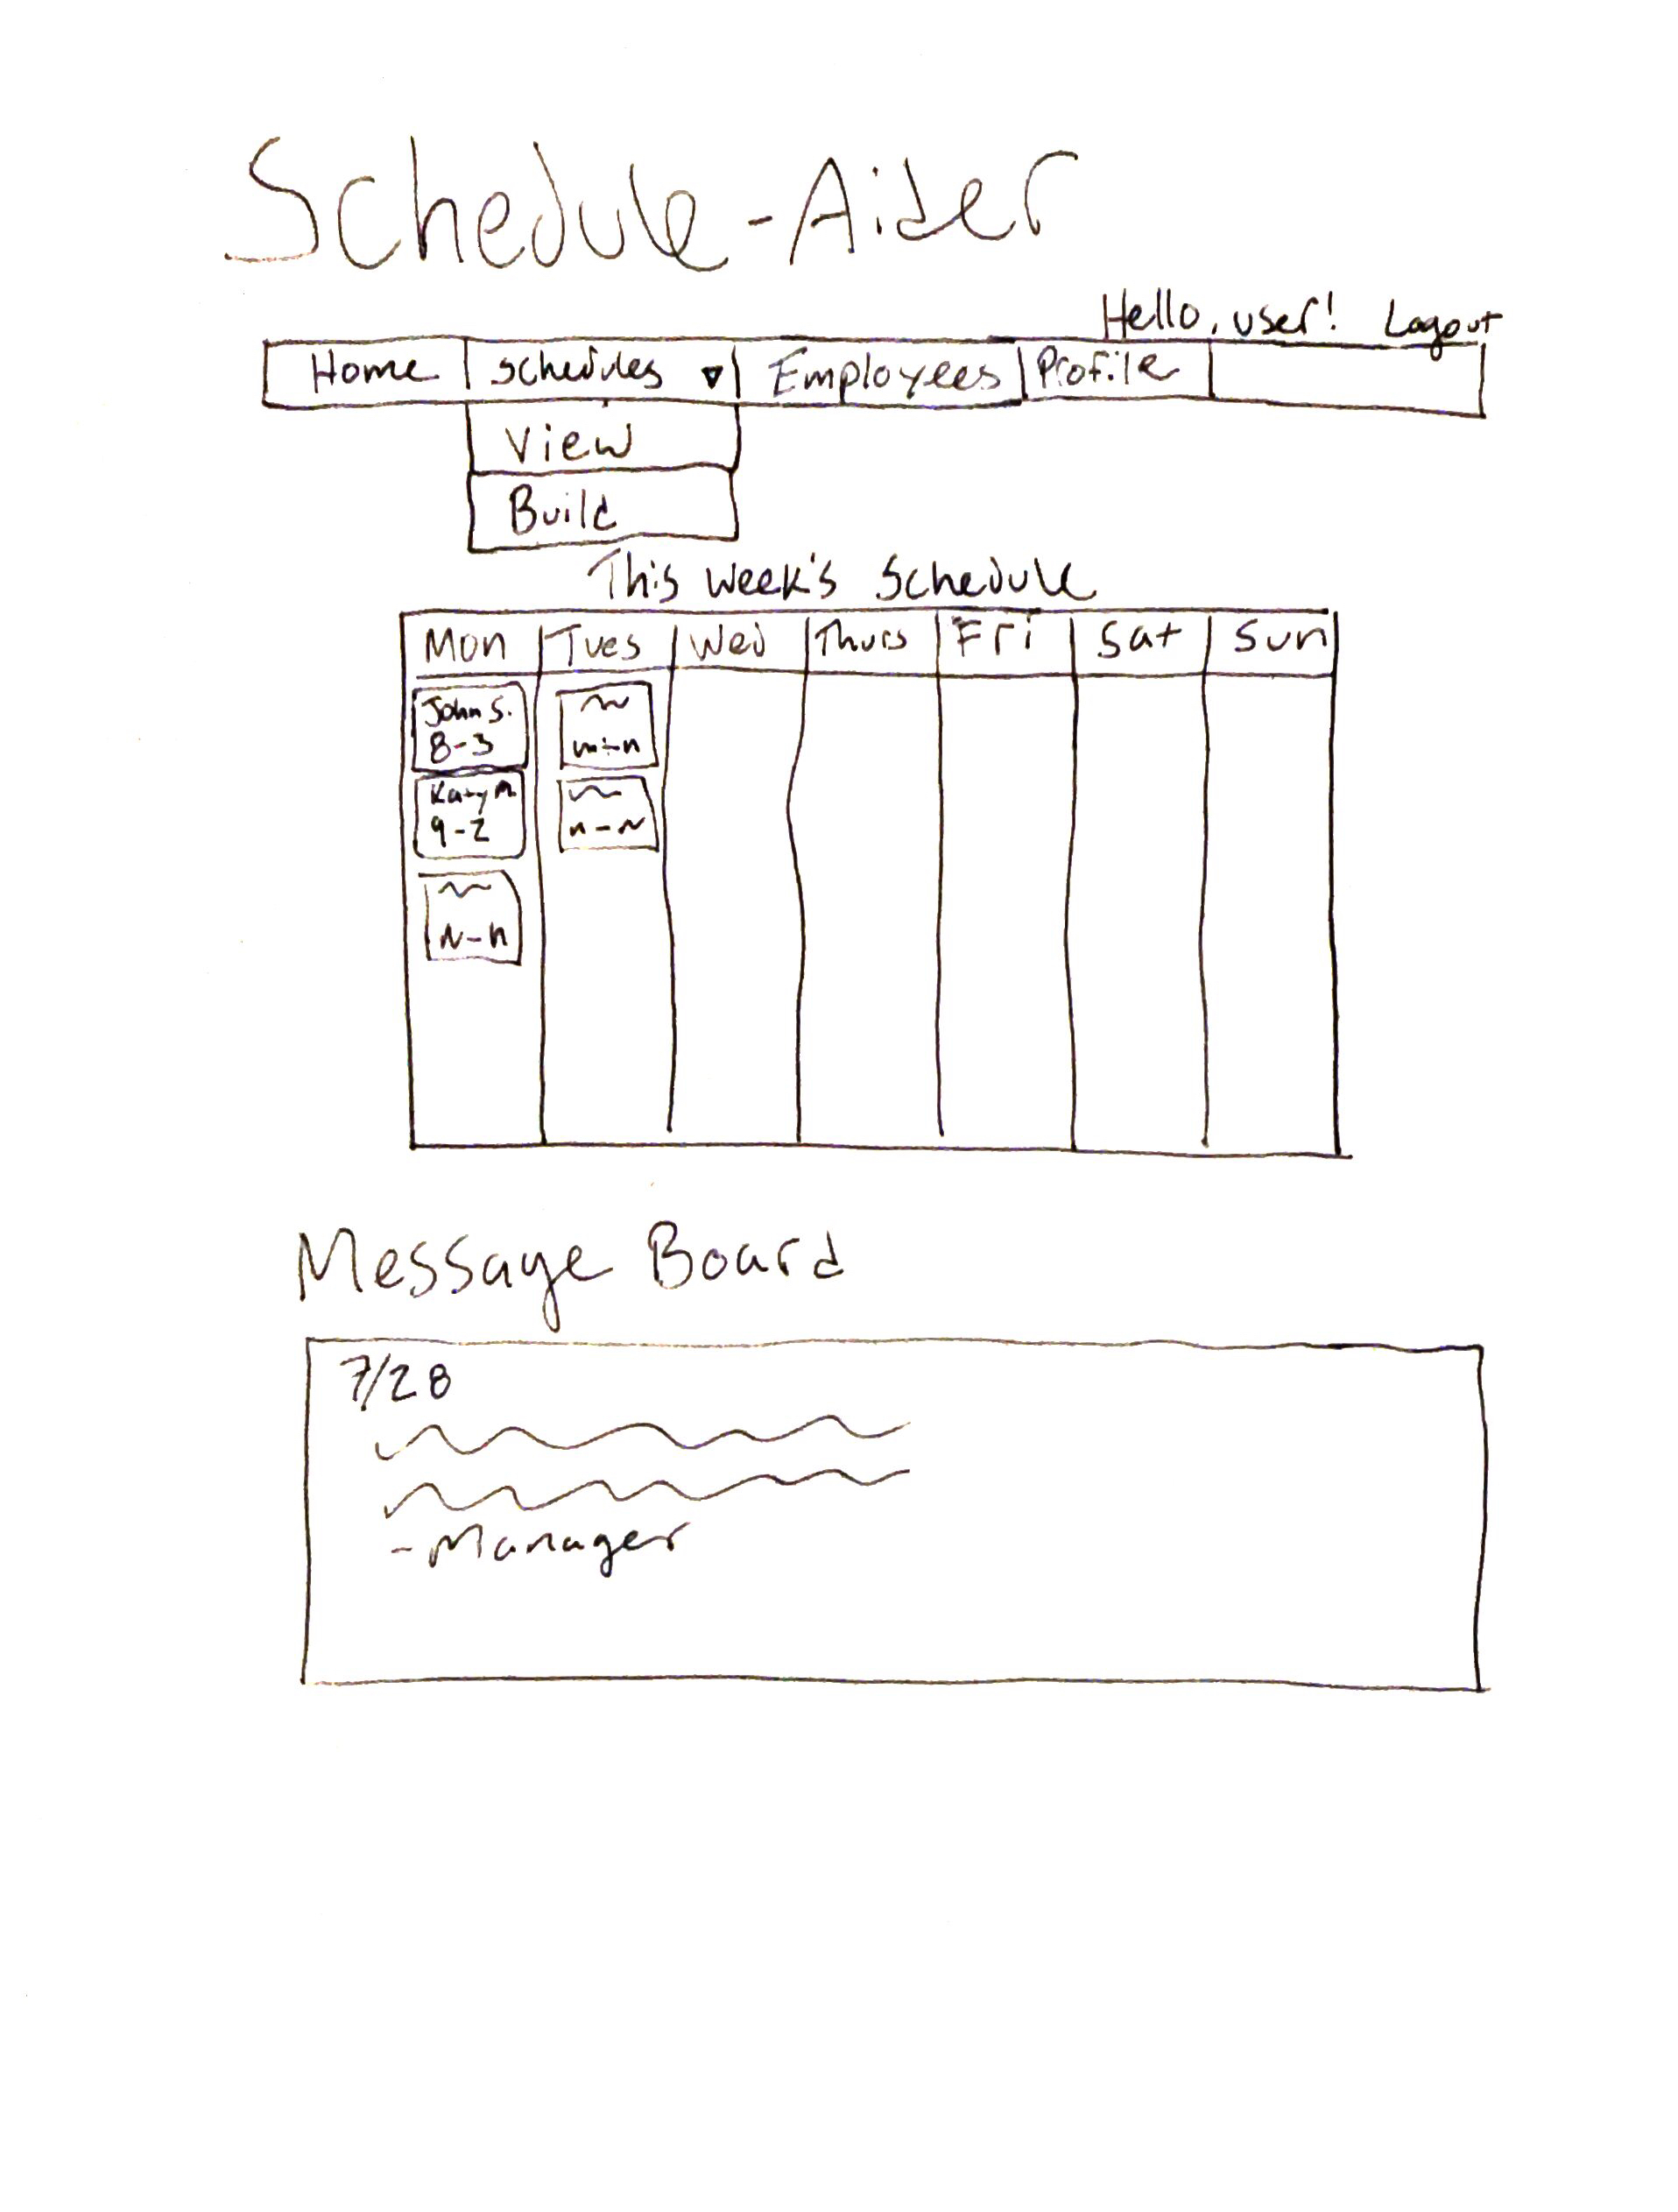 Schedule-Aider
Hello, user! Logout
Home schedules Employees Profile
View
Build
This Week's Schedule
Mon Tues Wed Thurs Fri Sat Sun
John S.
8-3
Katy M.
9-2
7/28
Message Board
-Manager